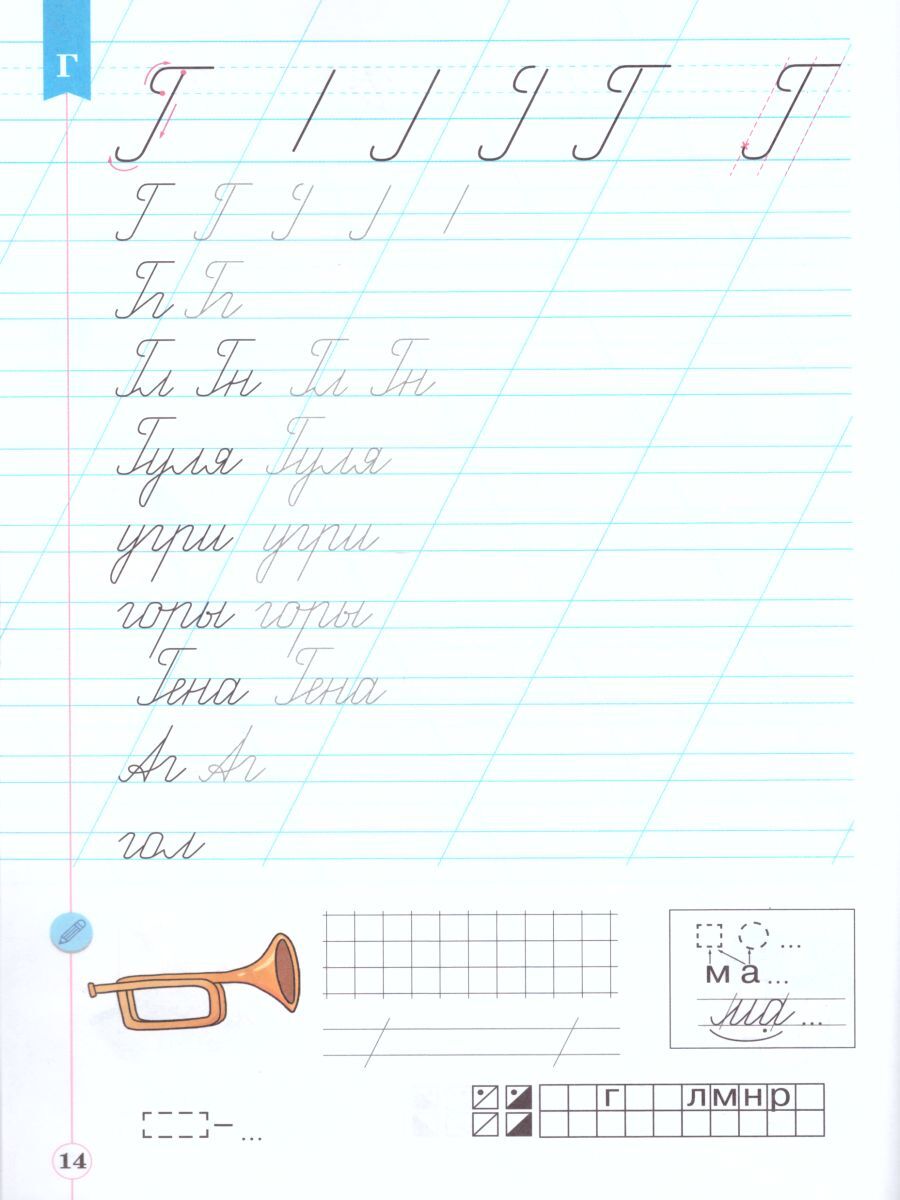 Г
Г Г Г
Г Г
Гг Гг
Гл Гн Гл Гн
Гуля Гуля
угри угри
горы горы
Гена Гена
Аг Аг
гол
...
м а ...
ма ...
г л м н р
– ...
14